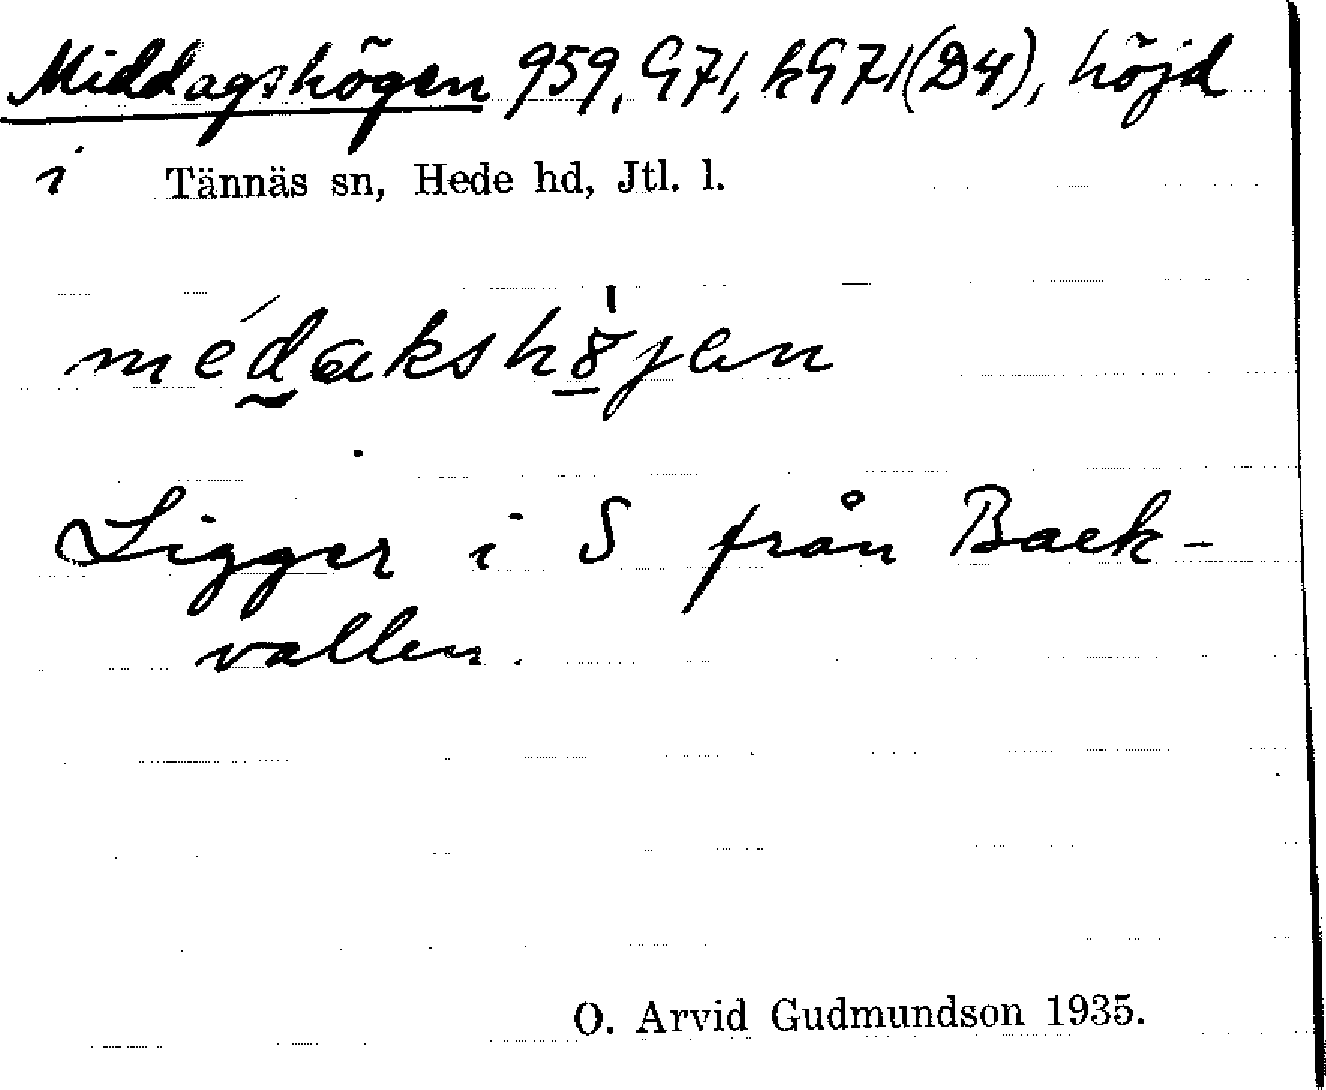 Middagshögen 959, G71, kG71(D4), höjd
i Tännäs sn, Hede hd, Jtl. l.
médakshö̱jen
Ligger i S från Back-
vallen.
O. Arvid Gudmundson 1935.